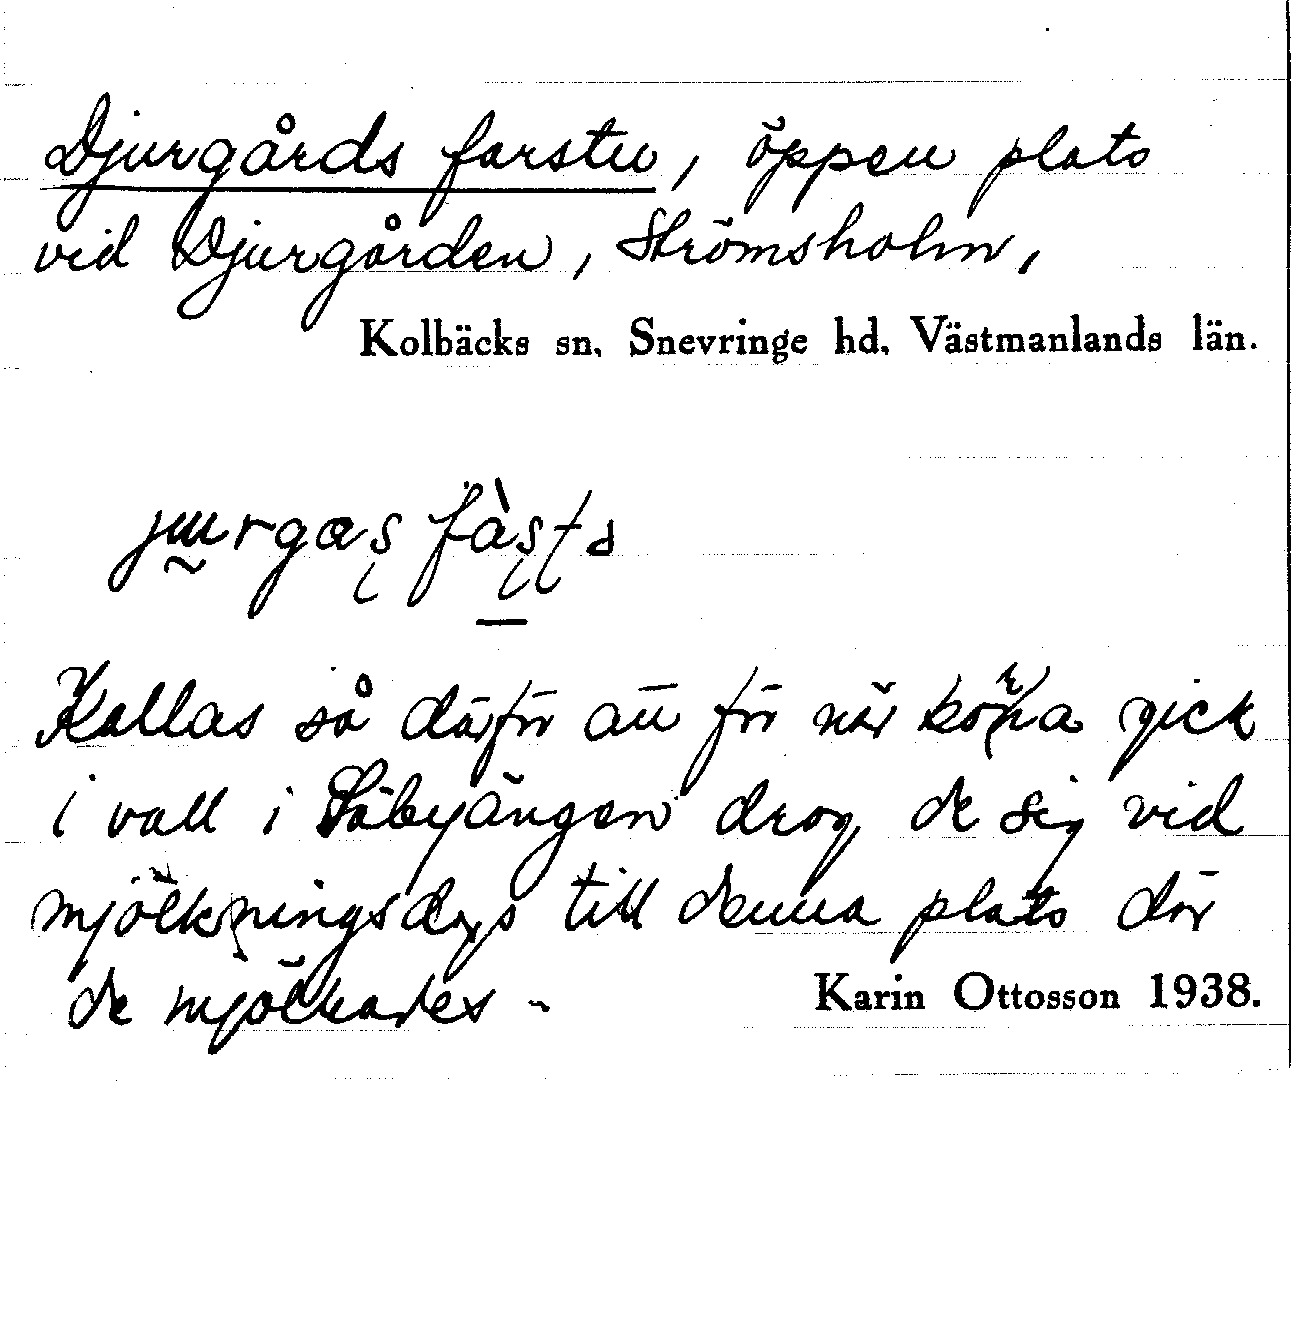 Djurgårds farstu, öppen plats
vid Djurgården, Strömsholm,
Kolbäcks sn, Snevringe hd, Västmanlands län.
Kallas så därför att för när korna gick
i vall i Säbyängen drog de sig vid
mjölkningsdags till denna plats där
de mjölkades -
Karin Ottosson 1938.